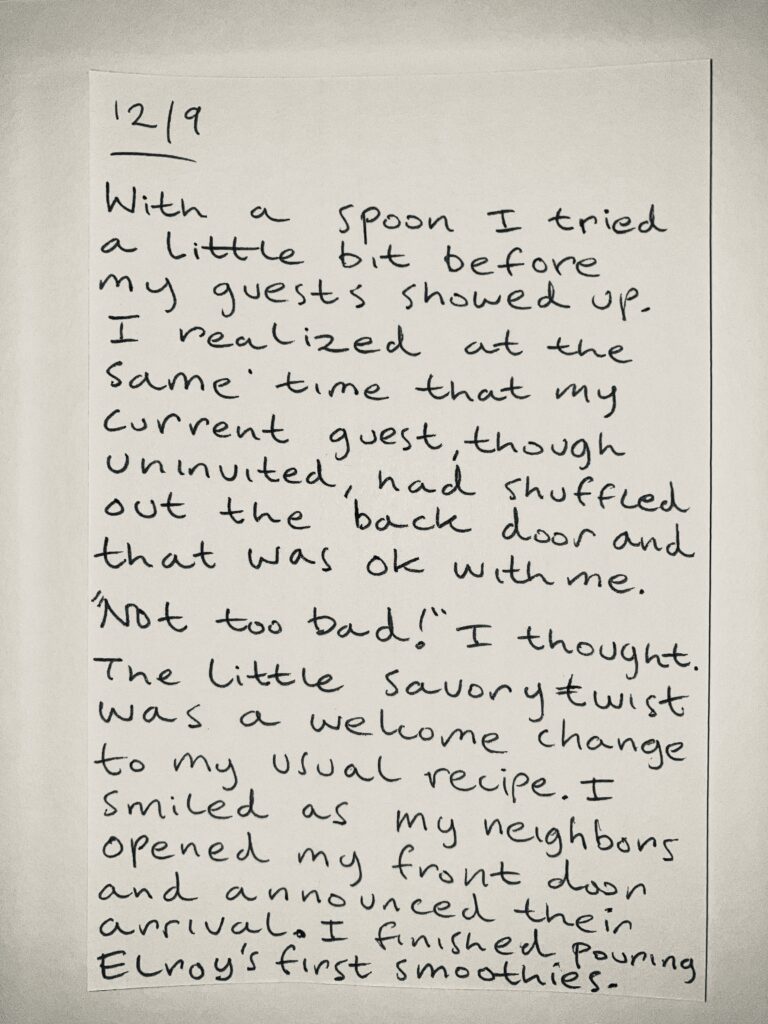 12/9
With a spoon I tried
a little bit before
my guests showed up.
I realized at the
same time that my
current guest, though
uninvited, had shuffled
out the back door and
that was ok with me.
"Not too bad!" I thought.
The little savory twist
was a welcome change
to my usual recipe. I
smiled as my neighbors
opened my front door
and announced their
arrival. I finished pouring
Elroy's first smoothies.